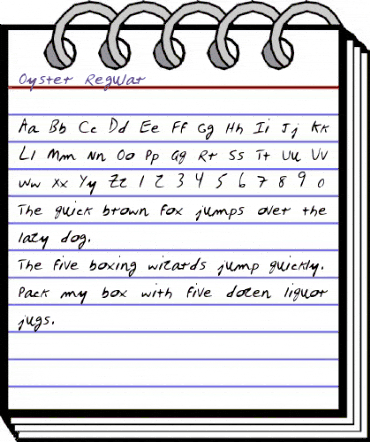 Oyster Regular
Aa Bb Cc Dd Ee Ff Gg Hh Ii Jj Kk
Ll Mm Nn Oo Pp Qq Rr Ss Tt Uu Vv
Ww Xx Yy Zz 1 2 3 4 5 6 7 8 9 0
The quick brown fox jumps over the
lazy dog.
The five boxing wizards jump quickly.
Pack my box with five dozen liquor
jugs.